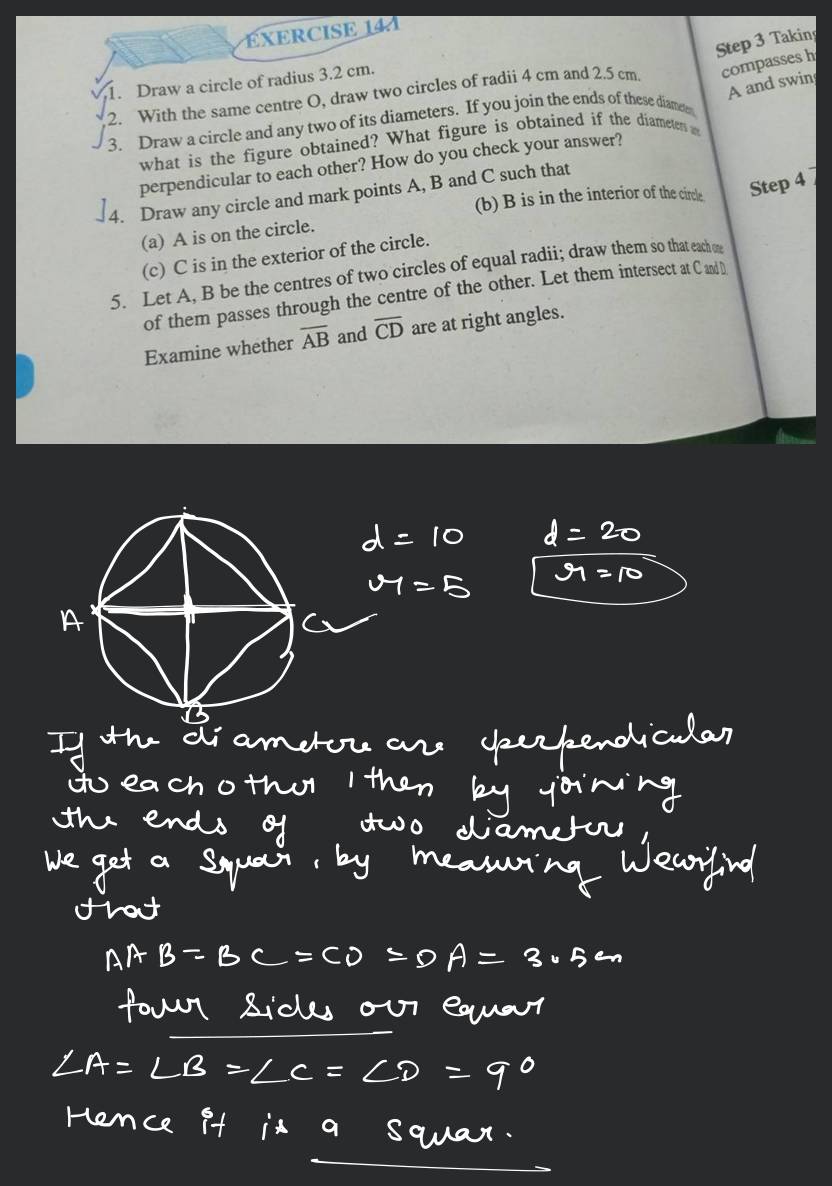 EXERCISE 14.1
1. Draw a circle of radius 3.2 cm.
2. With the same centre O, draw two circles of radii 4 cm and 2.5 cm.
3. Draw a circle and any two of its diameters. If you join the ends of these diameters,
what is the figure obtained? What figure is obtained if the diameters are
perpendicular to each other? How do you check your answer?
4. Draw any circle and mark points A, B and C such that
(a) A is on the circle. (b) B is in the interior of the circle.
(c) C is in the exterior of the circle.
5. Let A, B be the centres of two circles of equal radii; draw them so that each one
of them passes through the centre of the other. Let them intersect at C and D.
Examine whether AB and CD are at right angles.
Step 3 Taking
compasses h
A and swing
Step 4
d = 10 d = 20
r = 5 r = 10
A C
B
If the diametere are perpendicular
to each other , then by joining
the ends of two diameters,
We get a Squar, by measuring We find
that
AAB = BC = CD = DA = 3.5 cm
four sides our equar
∠A = ∠B = ∠C = ∠D = 90
Hence it is a squar.